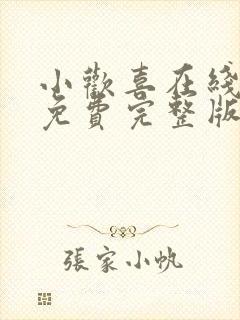 小歡喜在綫
免費完整版
張家小帆